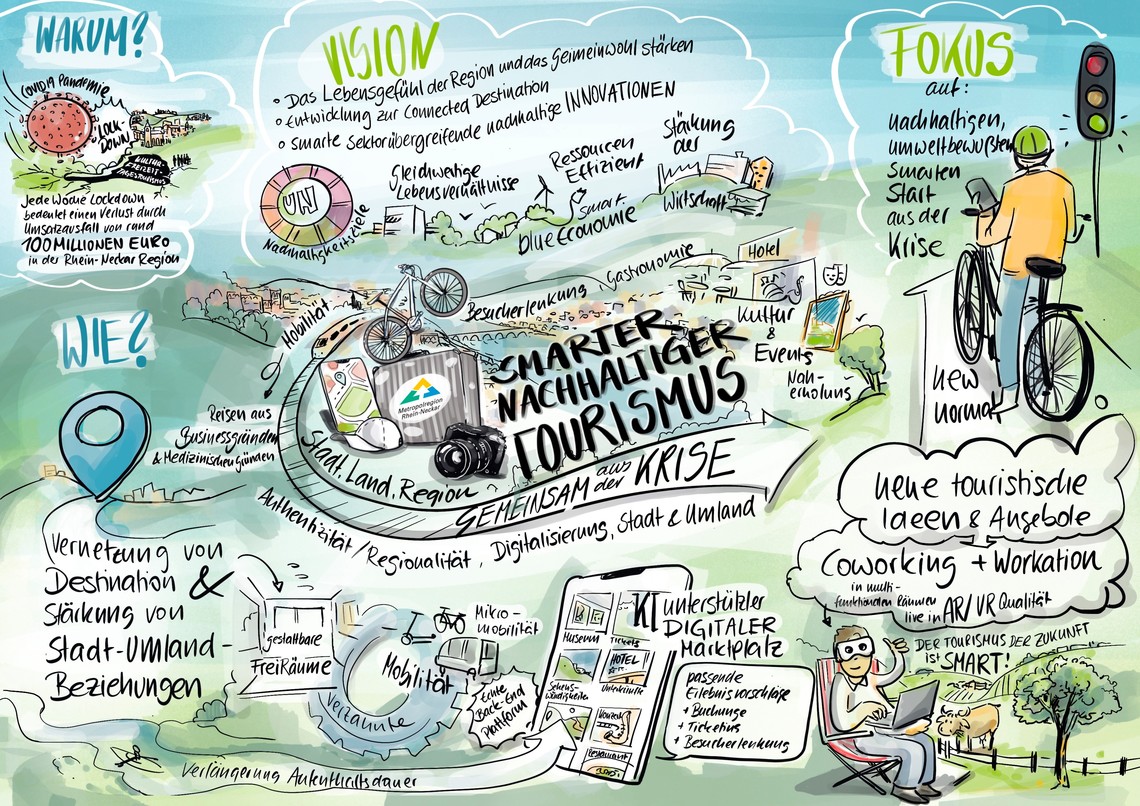 WARUM?
COVID19 Pandemie
LOCK-
DOWN
KULTUR-
FREIZEIT-
TAGESTOURISMUS
Jede Woche Lockdown
bedeutet einen Verlust durch
Umsatzausfall von rund
100 MILLIONEN EURO
in der Rhein-Neckar Region
VISION
Das Lebensgefühl der Region und das Geimeinwohl stärken
Entwicklung zur Connected Destination
smarte Sektorübergreifende nachhaltige INNOVATIONEN
UN
Nachhaltigkeitsziele
Gleichwertige
Lebensverhältnisse
Ressourcen
Effizient
smart
blue Economie
Stärkung
der
Wirtschaft
FOKUS
auf:
nachhaltigen,
umweltbewußten
Smarten
Start
aus der
Krise
New
normal
WIE?
Vernetzung von
Destination &
Stärkung von
Stadt-Umland-
Beziehungen
Mobilität
Besucherlenkung
Gastronomie
Hotel
Kultur
&
Events
Nah-
erholung
Reisen aus
Businessgründen
& Medizinischen Gründen
Metropolregion
Rhein-Neckar
SMARTER
NACHHALTIGER
TOURISMUS
Stadt, Land, Region
GEMEINSAM aus der KRISE
Authentizität/Regionalität, Digitalisierung, Stadt & Umland
gestaltbare
FreiRäume
Verzahnte
Mobilität
Mikro-
mobilität
Echte
Back-End
Plattform
Verlängerung Aufenthaltsdauer
Museum
Tickets
HOTEL
Sehens-
würdigkeiten
Unterkünfte
Konzert
Restaurant
KI unterstützler
DIGITALER
Marktplatz
passende
Erlebnisvorschläge
+ Buchunge
+ Ticketing
+ Besucherlenkung
neue touristische
Ideen & Angebote
Coworking + Workation
in multi-
funktionalen Räumen
live in AR/VR Qualität
DER TOURISMUS DER ZUKUNFT
ist SMART!